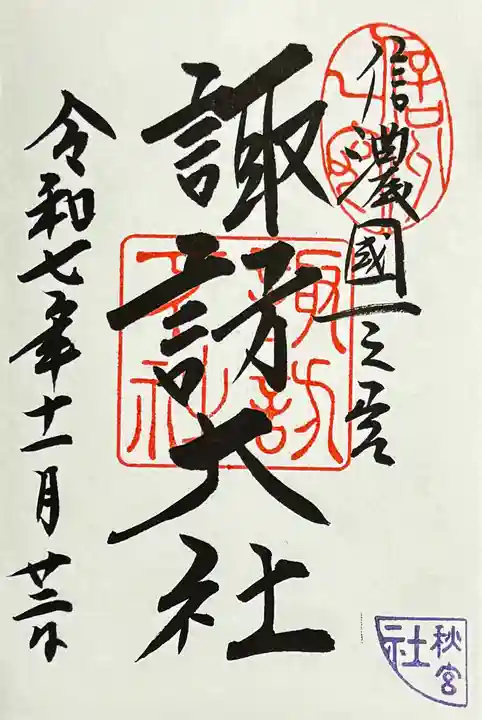 信濃國一之宮
諏訪大社
令和七年十一月廿三日
諏訪大社
秋宮
社